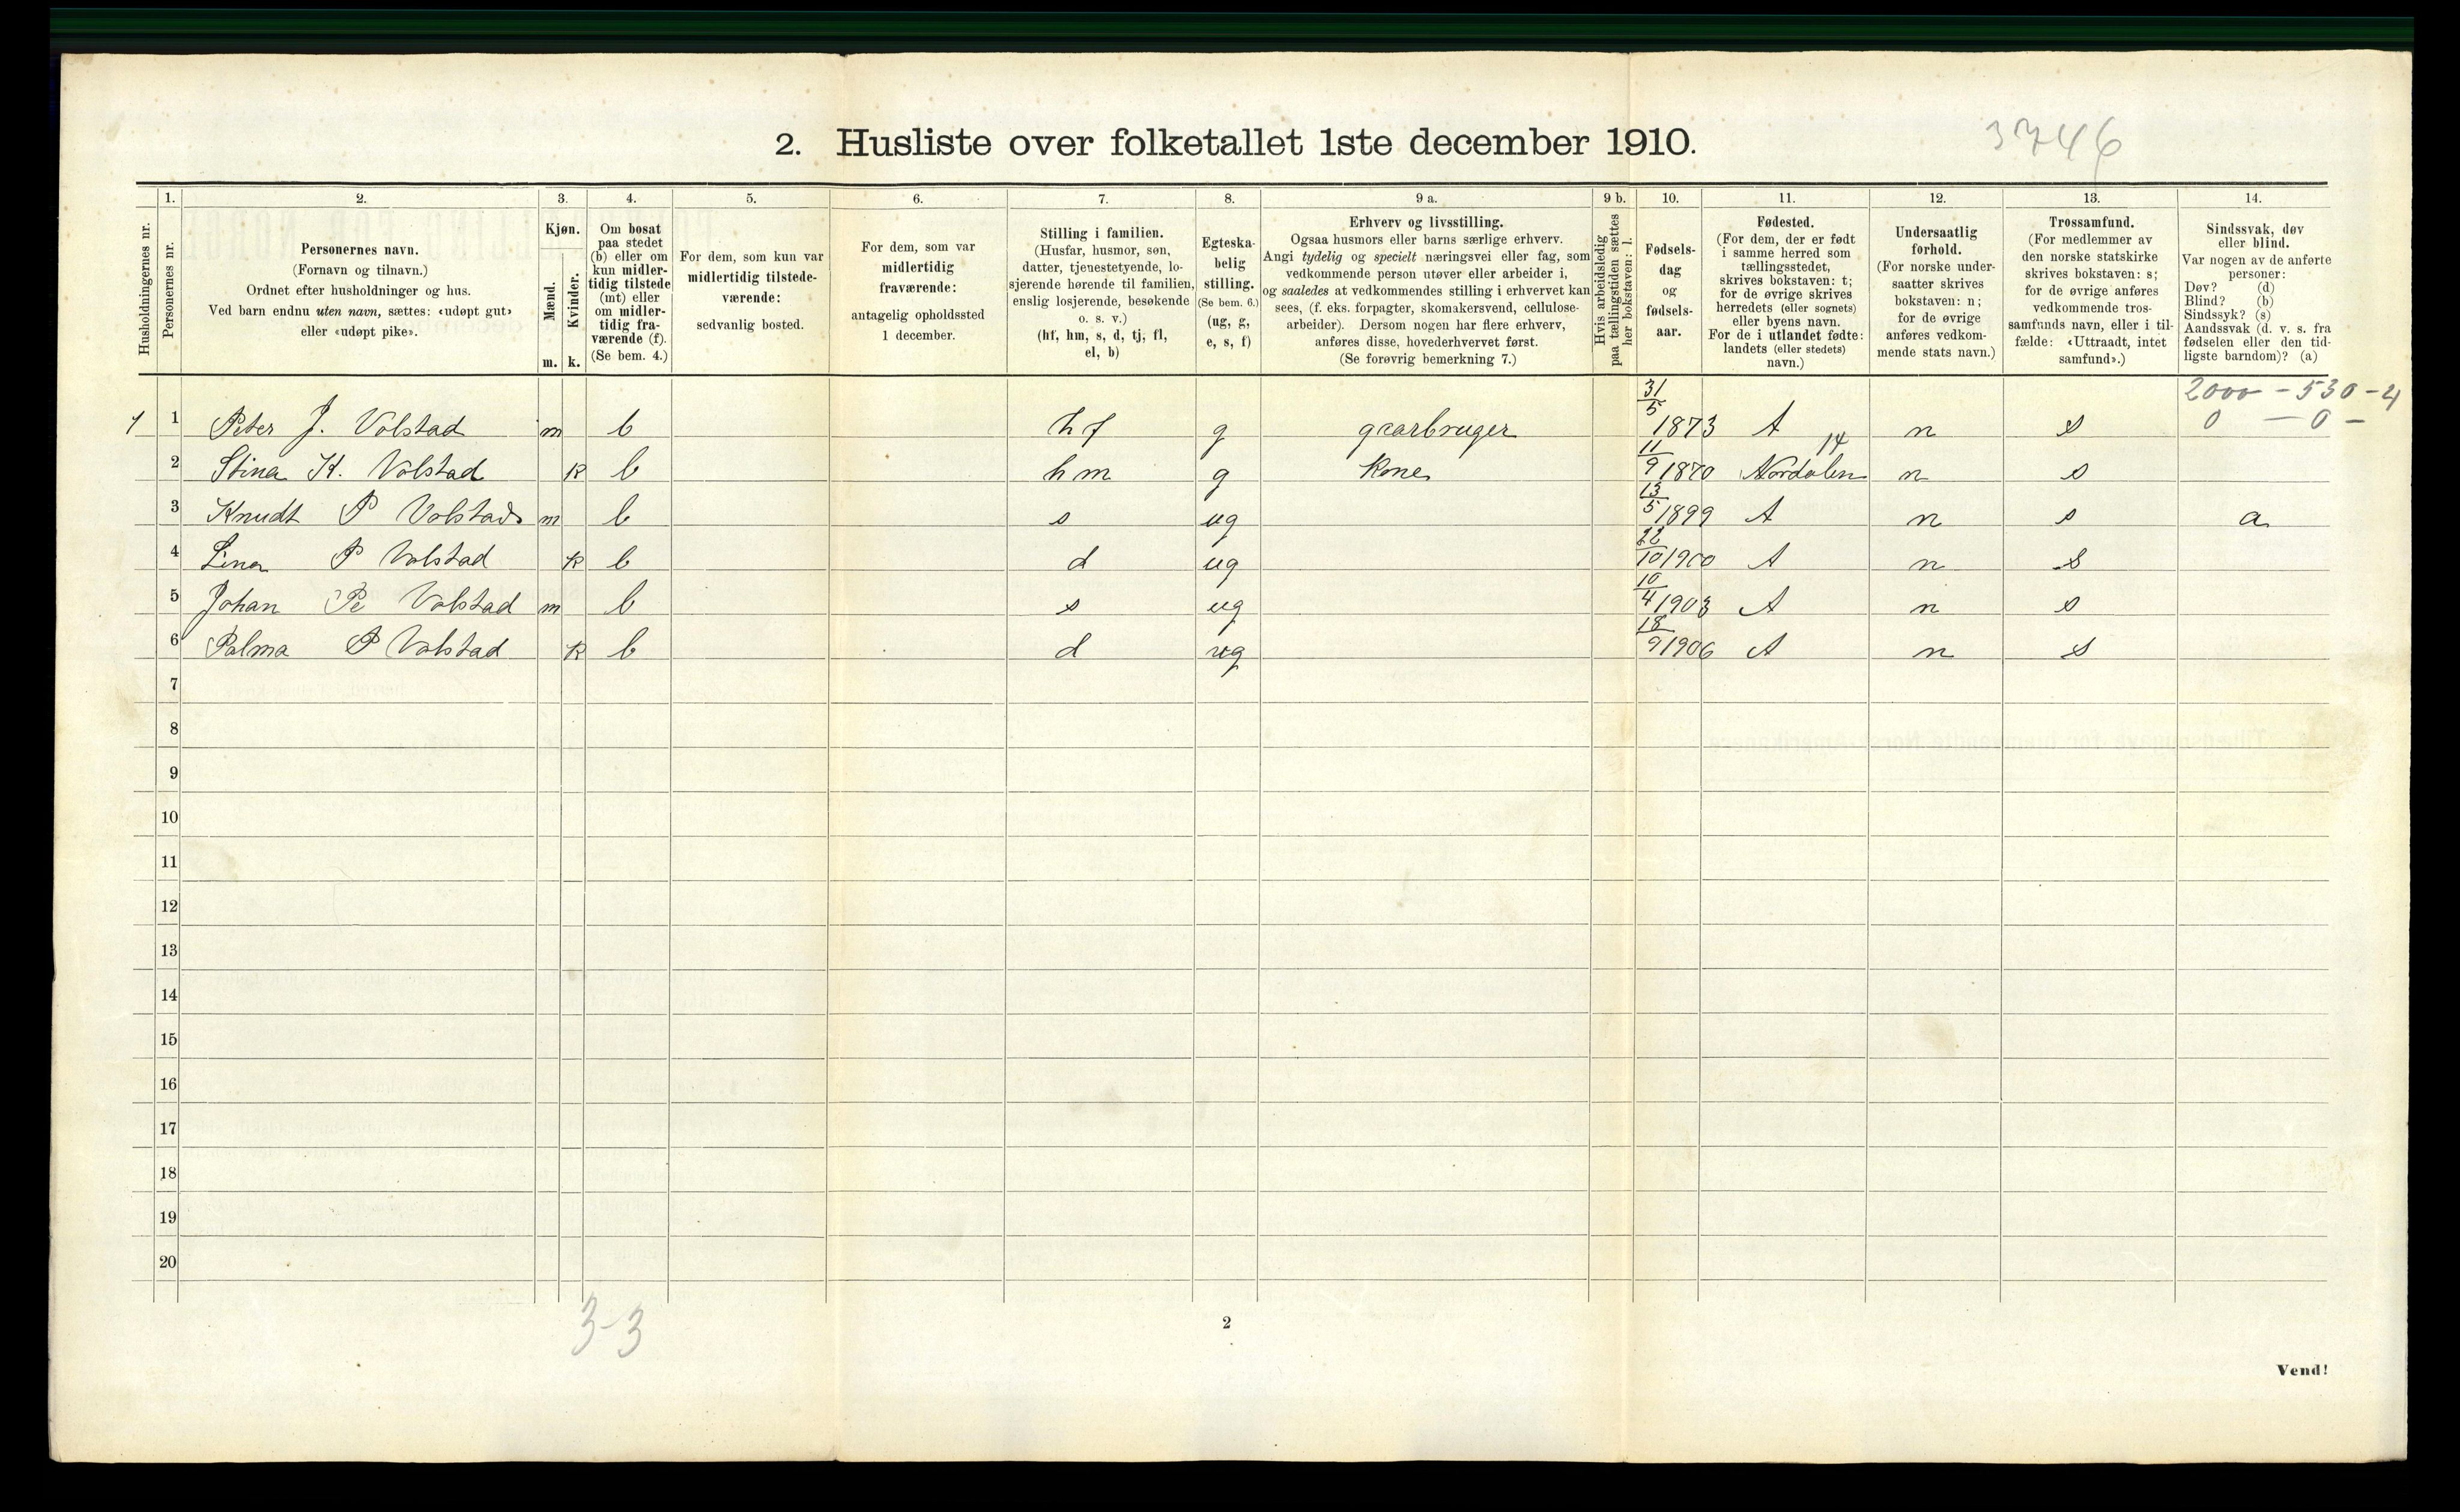 2. Husliste over folketallet 1ste december 1910.
3746
Husholdningernes nr.
1.
Personernes nr.
2.
Personernes navn.
(Fornavn og tilnavn.)
Ordnet efter husholdninger og hus.
Ved barn endnu uten navn, sættes: «udøpt gut»
eller «udøpt pike».
3.
Kjøn.
Mænd.
Kvinder.
m. k.
4.
Om bosat
paa stedet
(b) eller om
kun midler-
tidig tilstede
(mt) eller
om midler-
tidig fra-
værende (f).
(Se bem. 4.)
5.
For dem, som kun var
midlertidig tilstede-
værende:
sedvanlig bosted.
6.
For dem, som var
midlertidig
fraværende:
antagelig opholdssted
1 december.
7.
Stilling i familien.
(Husfar, husmor, søn,
datter, tjenestetyende, lo-
sjerende hørende til familien,
enslig losjerende, besøkende
o. s. v.)
(hf, hm, s, d, tj, fl,
el, b)
8.
Egteska-
belig
stilling.
(Se bem. 6.)
(ug, g,
e, s, f)
9 a.
Erhverv og livsstilling.
Ogsaa husmors eller barns særlige erhverv.
Angi tydelig og specielt næringsvei eller fag, som
vedkommende person utøver eller arbeider i,
og saaledes at vedkommendes stilling i erhvervet kan
sees, (f. eks. forpagter, skomakersvend, cellulose-
arbeider). Dersom nogen har flere erhverv,
anføres disse, hovederhvervet først.
(Se forøvrig bemerkning 7.)
9 b.
Hvis arbeidsledig
paa tællingstiden sættes
her bokstaven: l.
10.
Fødsels-
dag
og
fødsels-
aar.
11.
Fødested.
(For dem, der er født
i samme herred som
tællingsstedet,
skrives bokstaven: t;
for de øvrige skrives
herredets (eller sognets)
eller byens navn.
For de i utlandet fødte:
landets (eller stedets)
navn.)
12.
Undersaatlig
forhold.
(For norske under-
saatter skrives
bokstaven: n;
for de øvrige
anføres vedkom-
mende stats navn.)
13.
Trossamfund.
(For medlemmer av
den norske statskirke
skrives bokstaven: s;
for de øvrige anføres
vedkommende tros-
samfunds navn, eller i til-
fælde: «Uttraadt, intet
samfund».)
14.
Sindssvak, døv
eller blind.
Var nogen av de anførte
personer:
Døv? (d)
Blind? (b)
Sindssyk? (s)
Aandssvak (d. v. s. fra
fødselen eller den tid-
ligste barndom)? (a)
2000 - 530 - 4
0 - 0 -
1 1 Peter J. Volstad m b hf g gaarbruger 31/5 1873 t n s
14
2 Stina K. Volstad k b hm g Kone 11/9 1870 Nordalen n s
3 Knudt P Volstad m b s ug 13/5 1899 t n s a
4 Lina P Volstad k b d ug 22/10 1900 t n s
5 Johan Pe Volstad m b s ug 10/4 1903 t n s
6 Palma P Volstad k b d ug 18/9 1906 t n s
7
8
9
10
11
12
13
14
15
16
17
18
19
20
3-3
2
Vend!